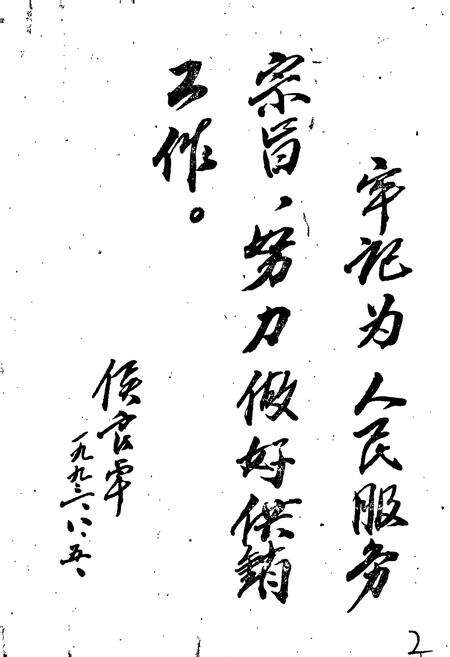 牢记为人民服务
宗旨、努力做好供銷
工作。
一九九三、八、五、
2